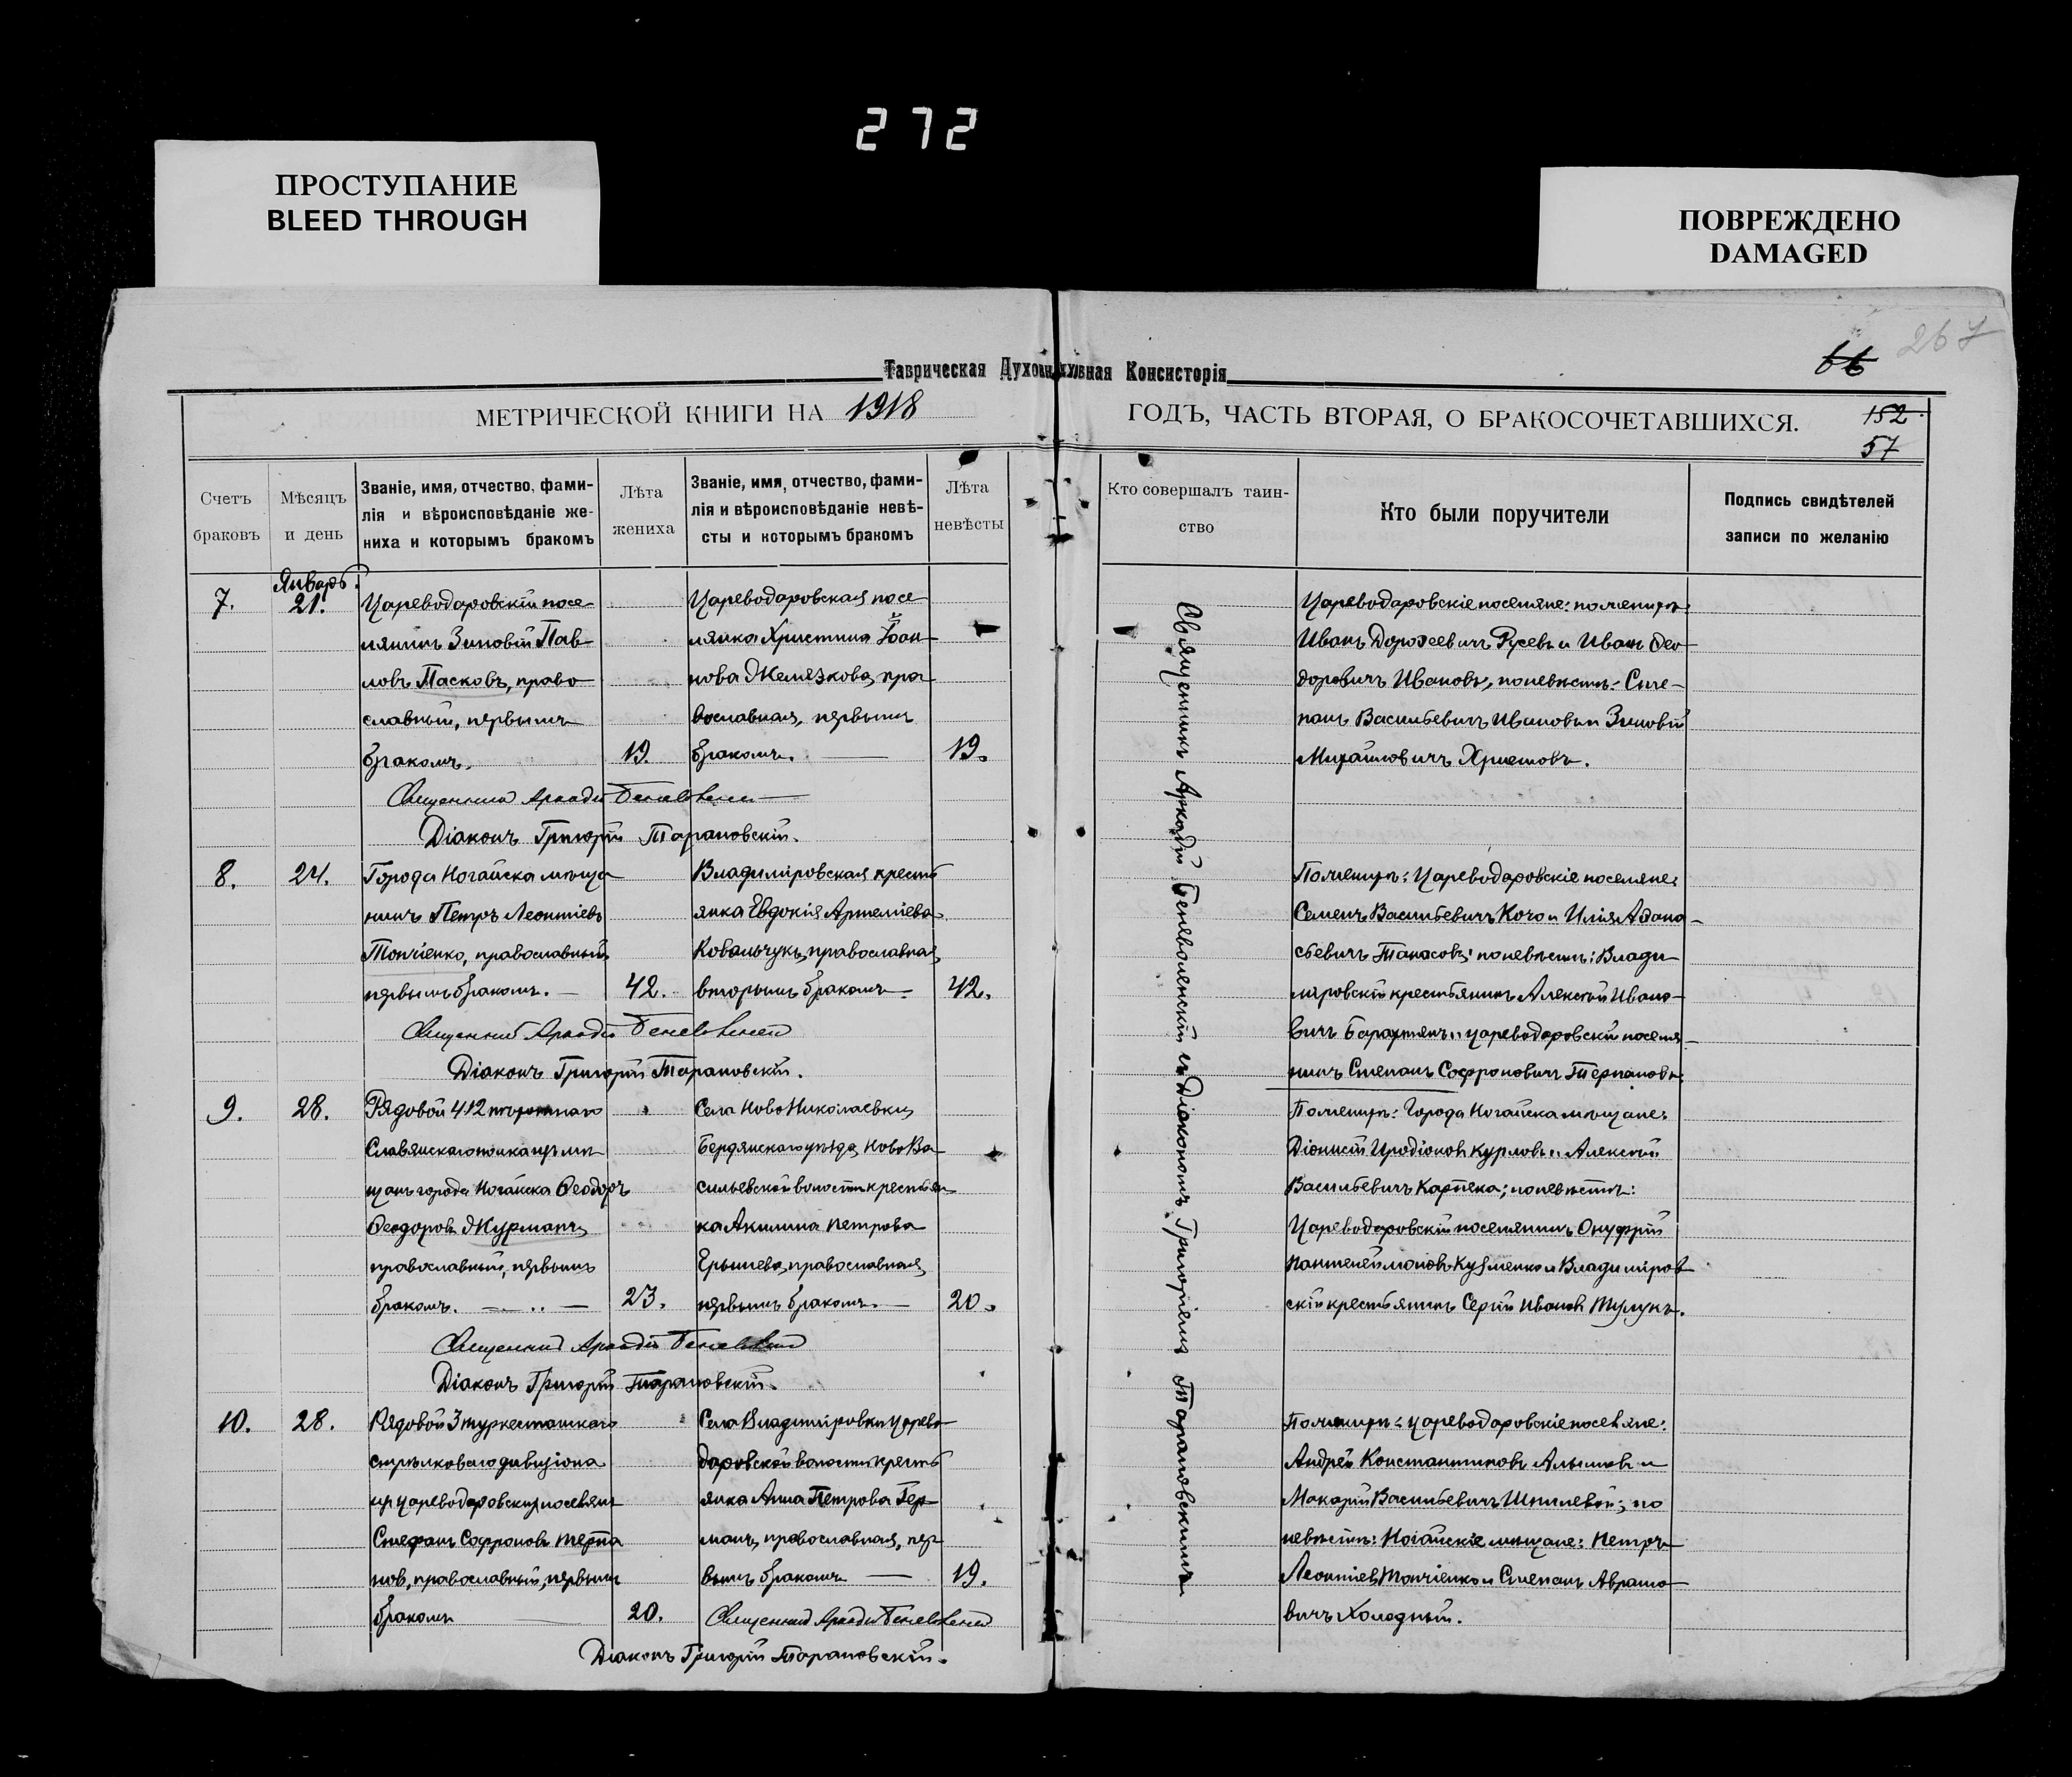 272
ПРОСТУПАНИЕ
BLEED THROUGH
ПОВРЕЖДЕНО
DAMAGED
267
66
Таврическая Духовная Консисторія
МЕТРИЧЕСКОЙ КНИГИ НА 1918
ГОДЪ, ЧАСТЬ ВТОРАЯ, О БРАКОСОЧЕТАВШИХСЯ.
152
57
Счетъ
браковъ
Мѣсяцъ
и день
Званіе, имя, отчество, фами-
лія и вѣроисповѣданіе же-
ниха и которымъ бракомъ
Лѣта
жениха
Званіе, имя, отчество, фами-
лія и вѣроисповѣданіе невѣ-
сты и которымъ бракомъ
Лѣта
невѣсты
Кто совершалъ таин-
ство
Кто были поручители
Подпись свидѣтелей
записи по желанію
7.
Январь
21.
Цареводаровскій посе-
лянинъ Зиновій Пав-
ловъ Пасковъ, право
славный, первымъ
бракомъ.
19.
Цареводаровская посе
лянка Христина Іоан-
нова Желязкова, пра-
вославная, первымъ
бракомъ.
19.
Цареводаровскіе поселяне: по женихѣ:
Иванъ Дорофеевичъ Русевъ и Иванъ Ѳео-
доровичъ Ивановъ, по невѣстѣ: Сте-
панъ Васильевичъ Ивановъ и Зиновій
Михайловичъ Христовъ.
Священникъ Аркадій Беневоленскій
Діаконъ Григорій Тарановскій.
8.
24.
Города Ногайска мѣща
нинъ Петръ Леонтіевъ
Топчіенко, православный,
первымъ бракомъ.
42.
Владиміровская кресть
янка Евдокія Артеміева
Ковальчукъ, православная,
вторымъ бракомъ.
42.
По женихѣ: Цареводаровскіе поселяне:
Семенъ Васильевичъ Кочо и Илія Аѳана-
сьевичъ Танасовъ; по невѣстѣ: Влади
міровскій крестьянинъ Алексѣй Ивано-
вичъ и цареводаровскій поселя-
нинъ Степанъ Софроновичъ Терпановъ.
Священникъ Аркадій Беневоленскій
Діаконъ Григорій Тарановскій.
9.
28.
Рядовой 412
Славянскаго полка изъ мѣ-
щанъ города Ногайска Ѳеодоръ
Ѳеодоровъ Журманъ,
православный, первымъ
бракомъ.
23.
Села НовоНиколаевки,
Бердянскаго уѣзда, НовоВа-
сильевской волости крестьян-
ка Акилина Петрова
Ерышева, православная,
первымъ бракомъ.
20.
По женихѣ: Города Ногайска мѣщане:
Діонисій Иродіоновъ Курловъ и Алексѣй
Васильевичъ Картека; по невѣстѣ:
Цареводаровскій поселянинъ Онуфрій
Пантелеймоновъ Кузменко и Владиміров
скій крестьянинъ Сергій Ивановъ Тулупъ.
Священникъ Аркадій Беневоленскій
Діаконъ Григорій Тарановскій.
10.
28.
Рядовой 3 туркестанскаго
стрѣлковаго дивизіона
изъ цареводаровскихъ поселянъ
Стефанъ Софроновъ Терпа
нов, православный, первымъ
бракомъ
20.
Села Владиміровки царево
даровской волости кресть
янка Анна Петрова Гер-
манъ, православная, пер
вымъ бракомъ
19.
По женихѣ: цареводаровскіе поселяне:
Андрей Константиновъ Алымовъ и
Макарій Васильевичъ Шпилевой; по
невѣстѣ: Ногайскіе мѣщане: Петръ
Леонтіев Топчіенко и Степанъ Авраамо-
вичъ Холодный.
Священникъ Аркадій Беневоленскій
Діаконъ Григорій Тарановскій.
Священникъ Аркадій Беневоленскій съ Діакономъ Григоріемъ Тарановскимъ